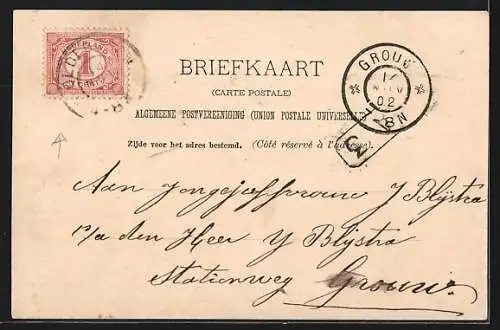 NEDERLAND
1
CENT
GROUW
02
7-8N
3
BRIEFKAART
(CARTE POSTALE)
ALGEMEENE POSTVEREENIGING (UNION POSTALE UNIVERSELLE)
Zijde voor het adres bestemd. (Côté réservé à l'adresse).
Aan Jongejuffrouw Y Blijstra
p/a den Heer Y Blijstra
Stationweg Grouw.